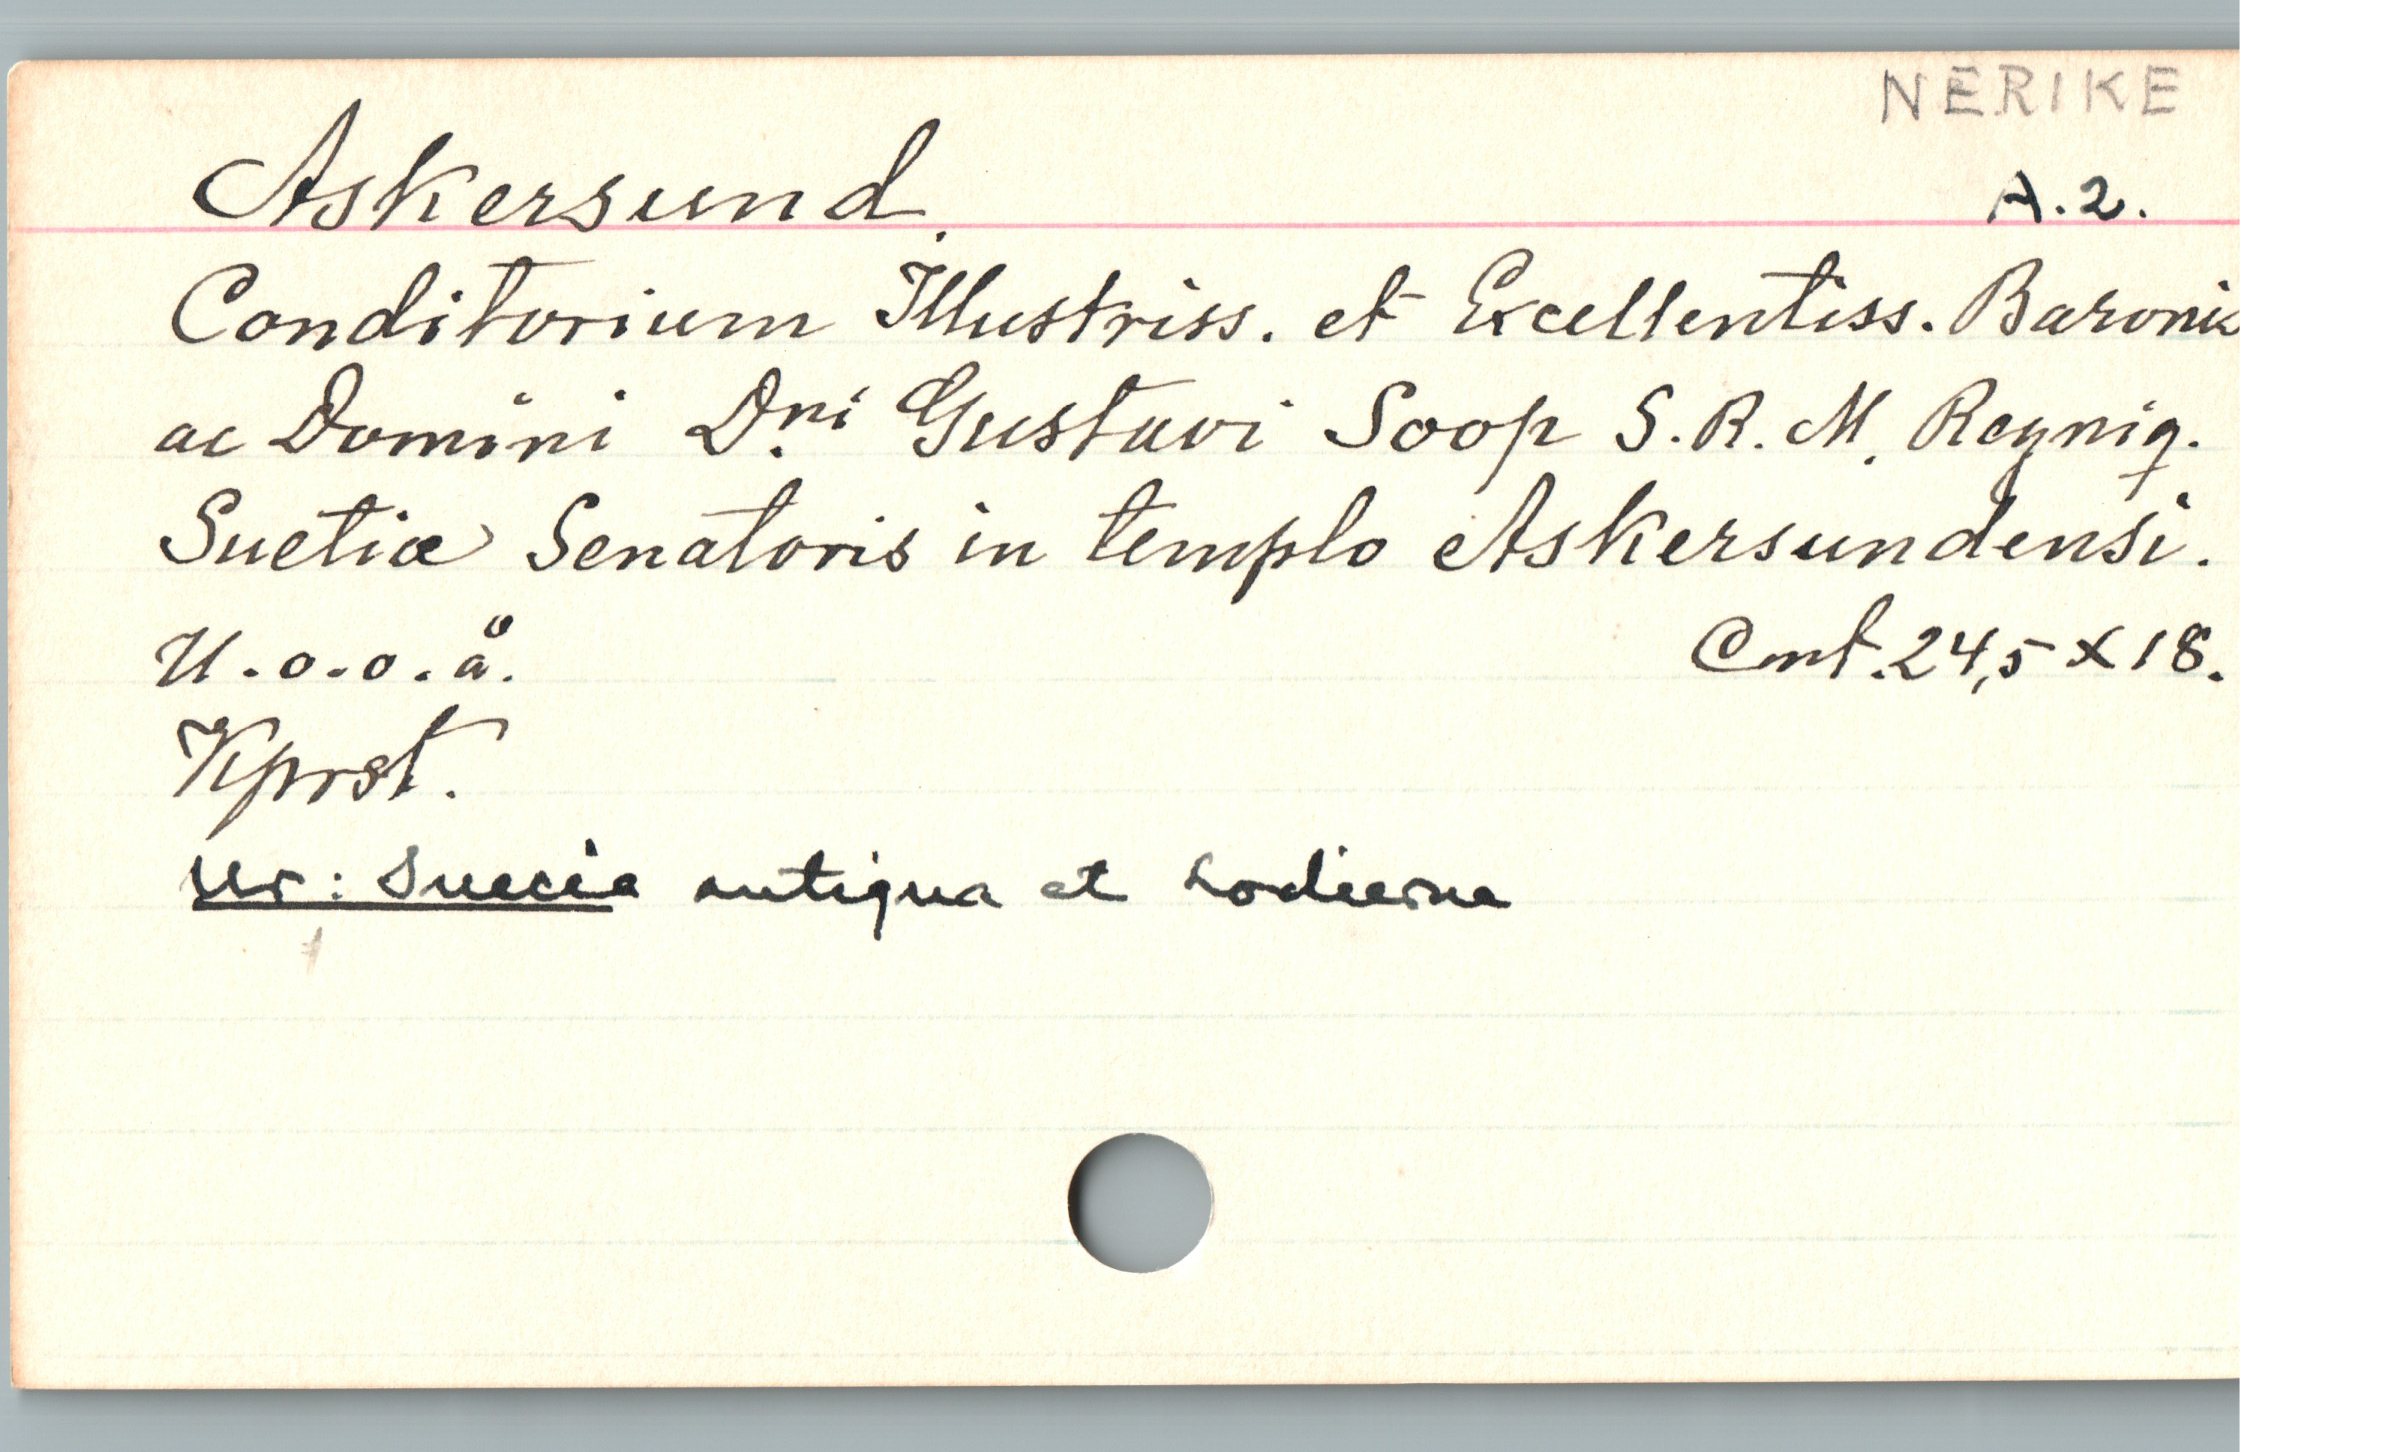 NERIKE
Askersund.
A.2.
Conditorium Illustriss. et Excellentiss. Baronis
ac Domini D.ni Gustavi Soop S. R. M. Regniq.
Suetiæ Senatoris in templo Askersundensi.
U.o.o.å.
Cmt. 24,5 × 18.
Kprst.
Ur: Suecia antiqua et hodierna